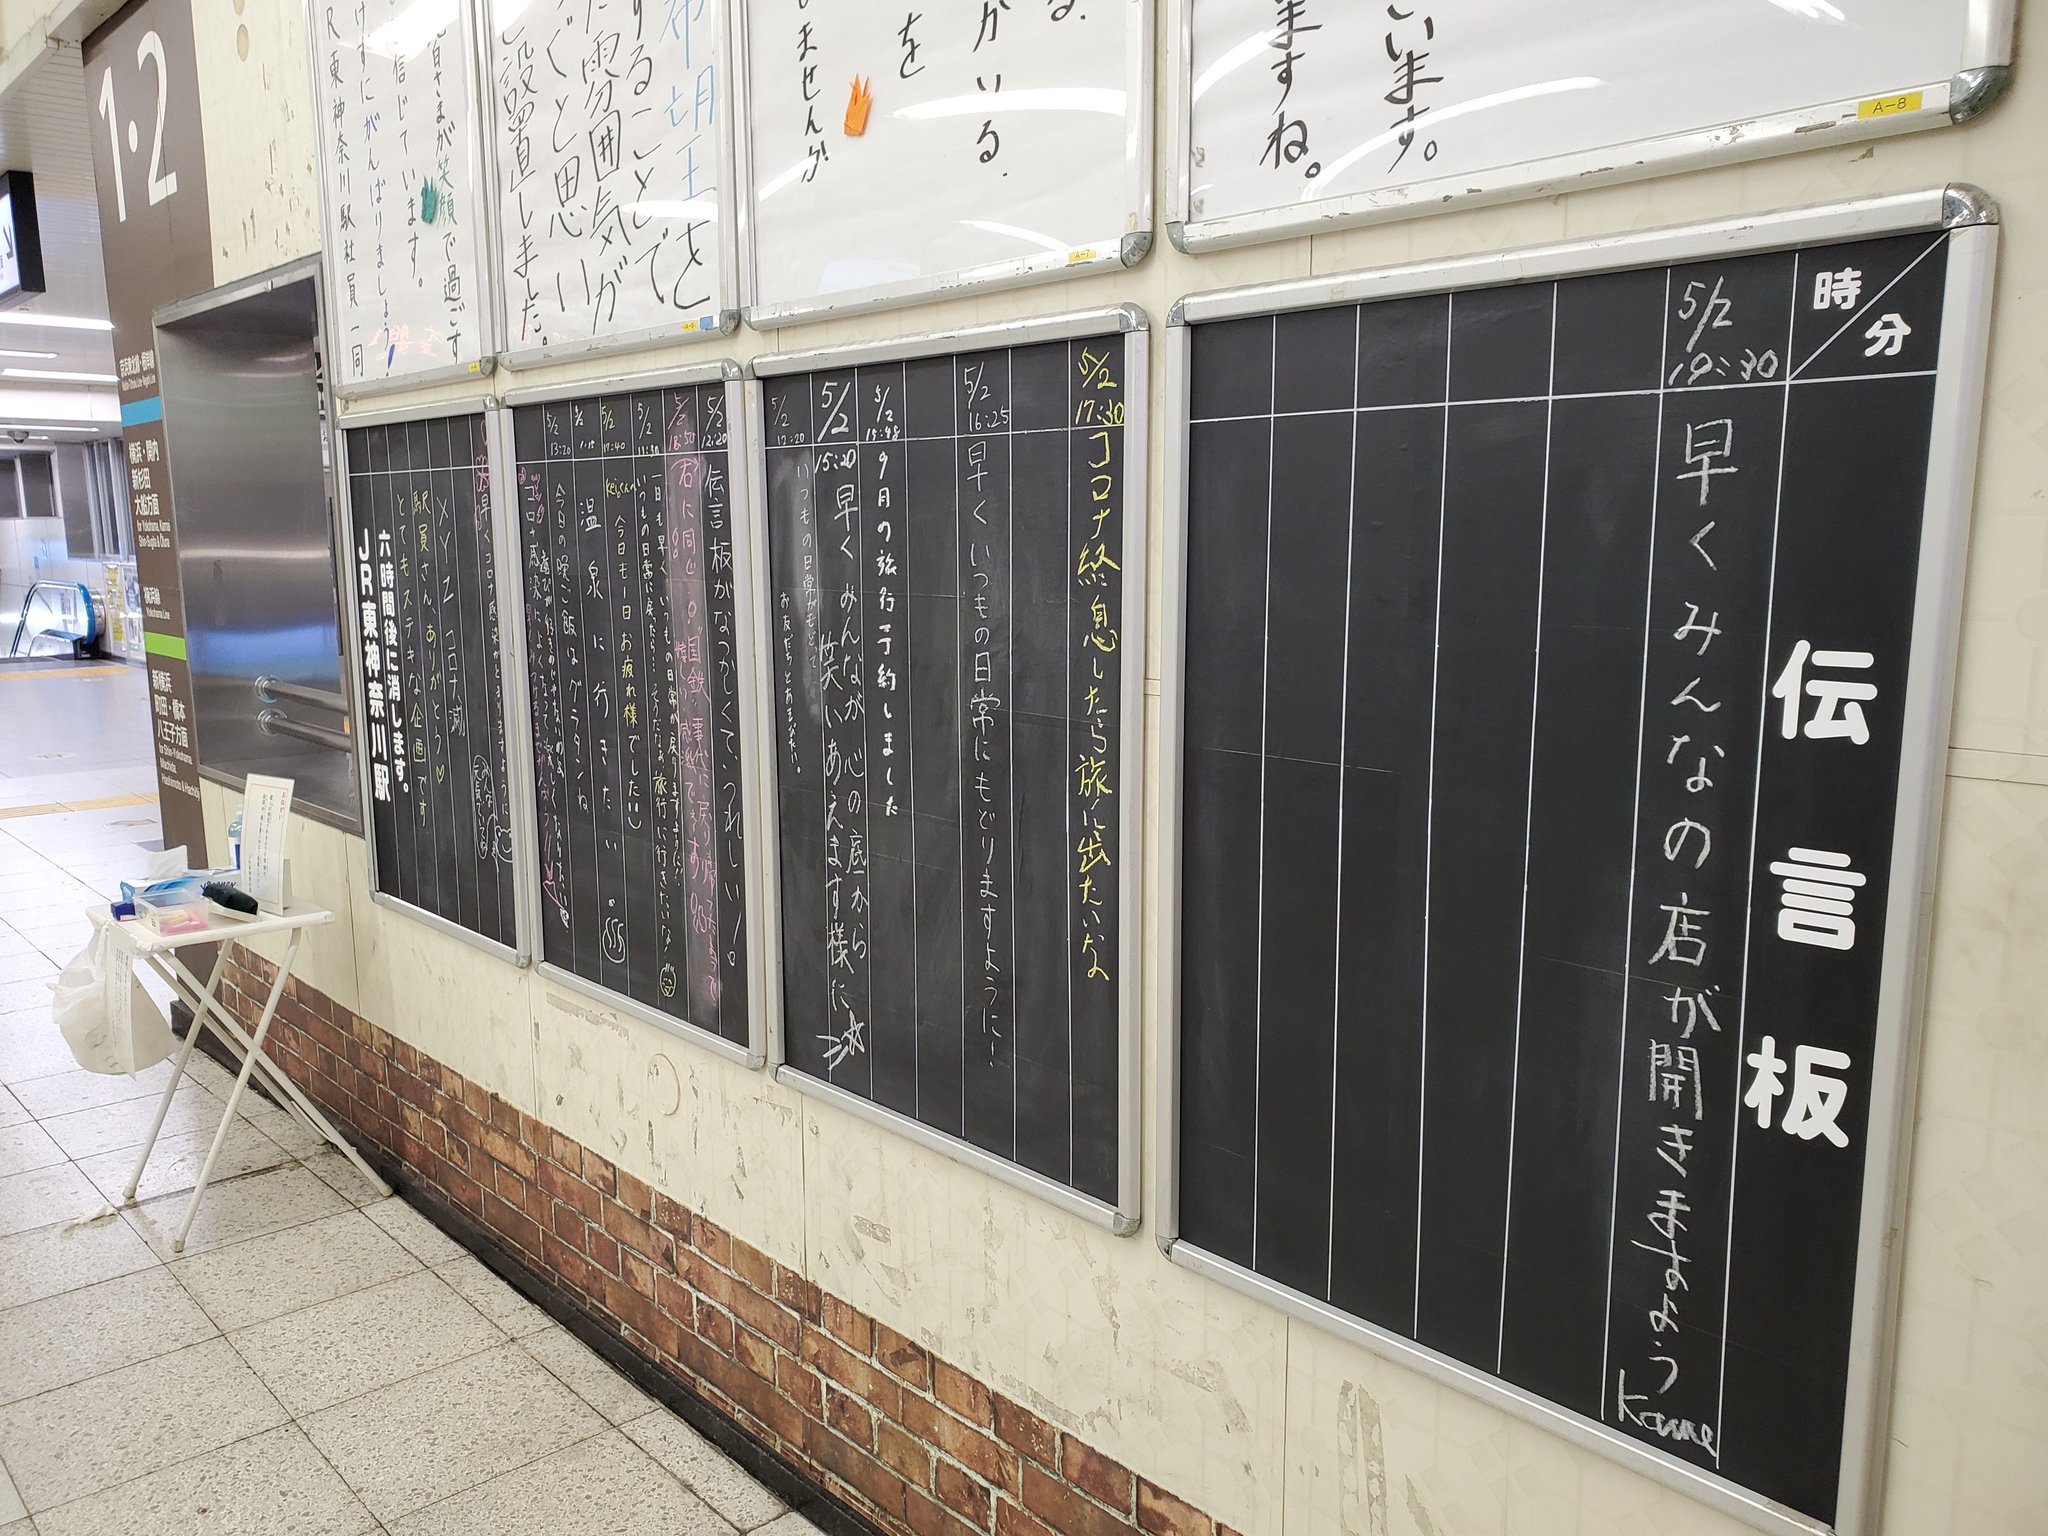 います。
ますね。
A-8
がいる.
を
しませんか!
A-7
希望を
することで
た雰囲気が
ぐと思い
設置しました。
皆さまが笑顔で過ごす
信じています。
けずにがんばりましょう!
R東神奈川駅社員一同
1・2
京浜東北線・根岸線
横浜・関内
新杉田
大船方面
for Yokohama, Kannai
Shin-Sugita & Ofuna
横浜線
Yokohama Line
新横浜
町田・橋本
八王子方面
for Shin-Yokohama
Machida
Hashimoto & Hachioji
時
分
伝言板
5/2
19:30
早くみんなの店が開きますよう
Kame
5/2
17:30
コロナ終息したら旅に出たいな
5/2
16:25
早くいつもの日常にもどりますように!
5/2
15:48
9月の旅行予約しました
5/2
15:20
早くみんなが心の底から
笑いあえます様に
5/2
12:20
いつもの日常がもどって
お友だちとあそびたい。
5/2
12:20
伝言板がなつかしくて、うれしい!
5/2
18:50
(右に同じ)
5/2
一日も早く、いつもの日常が戻りますように!!
いつもの日常に戻ったら…そうだなぁ旅行に行きたいな!
5/2
17:40
今日も1日お疲れ様でした
温泉に行きたい
5/2
13:20
今日の晩ご飯はグラタンね
早くコロナ感染がとまりますように
XYZ コロナ滅
駅員さん、ありがとう♡
とてもステキな企画です
六時間後に消します。
JR東神奈川駅